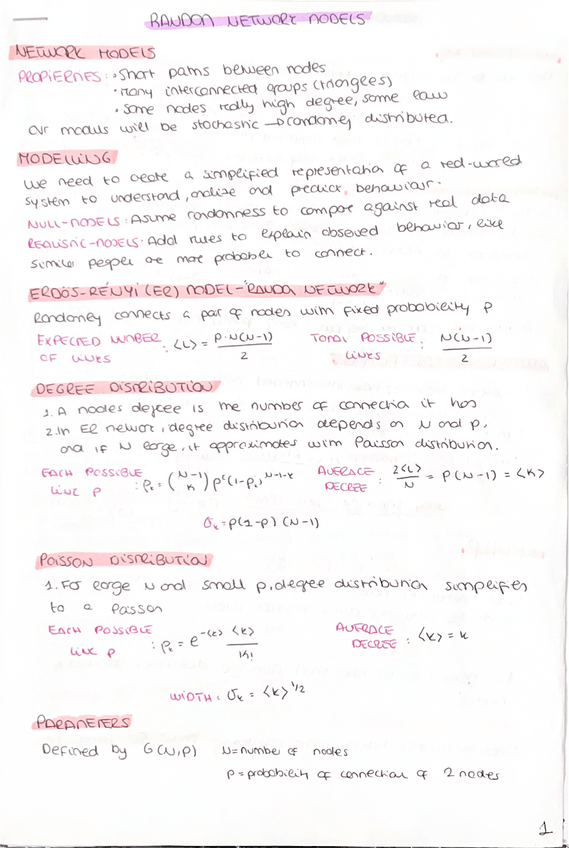 RANDOM NETWORK MODELS
NETWORK MODELS
PROPIERNES: • Short paths between nodes
• Many interconnected groups (triangles)
• Some nodes really high degree, some low
Our modules will be stochastic → randomly distributed.
MODELLING
We need to create a simplified representation of a real-world
system to understand, analize and predict behaviour.
NULL-MODELS: Asume randomness to compare against real data
REALISTIC-MODELS: Add rules to explain observed behavior, like
similar people are more probable to connect.
ERDÖS-RÉNYI (ER) MODEL-"RANDOM NETWORK"
Randomly connects a pair of nodes with fixed probability p
EXPECTED NUMBER OF LINKS : <L> = P·N(N-1) / 2
TOTAL POSSIBLE LINKS : N(N-1) / 2
DEGREE DISTRIBUTION
1. A nodes degree is the number of connection it has
2. In ER network, degree distribution depends on N and p,
and if N large, it approximates with Poisson distribution.
EACH POSSIBLE LINK P : Pk = (N-1 K) p^k (1-p)^N-1-k
AVERAGE DEGREE : 2<L> / N = P(N-1) = <K>
σk = p(1-p)(N-1)
POISSON DISTRIBUTION
1. For large N and small p, degree distribution simplifies
to a Poisson
EACH POSSIBLE LINK P : Pk = e^-<k> <k> / K!
AVERAGE DEGREE : <k> = k
WIDTH: σk = <k>^1/2
PARAMETERS
Defined by G(N,P) N=number of nodes
P=probability of connection of 2 nodes
1